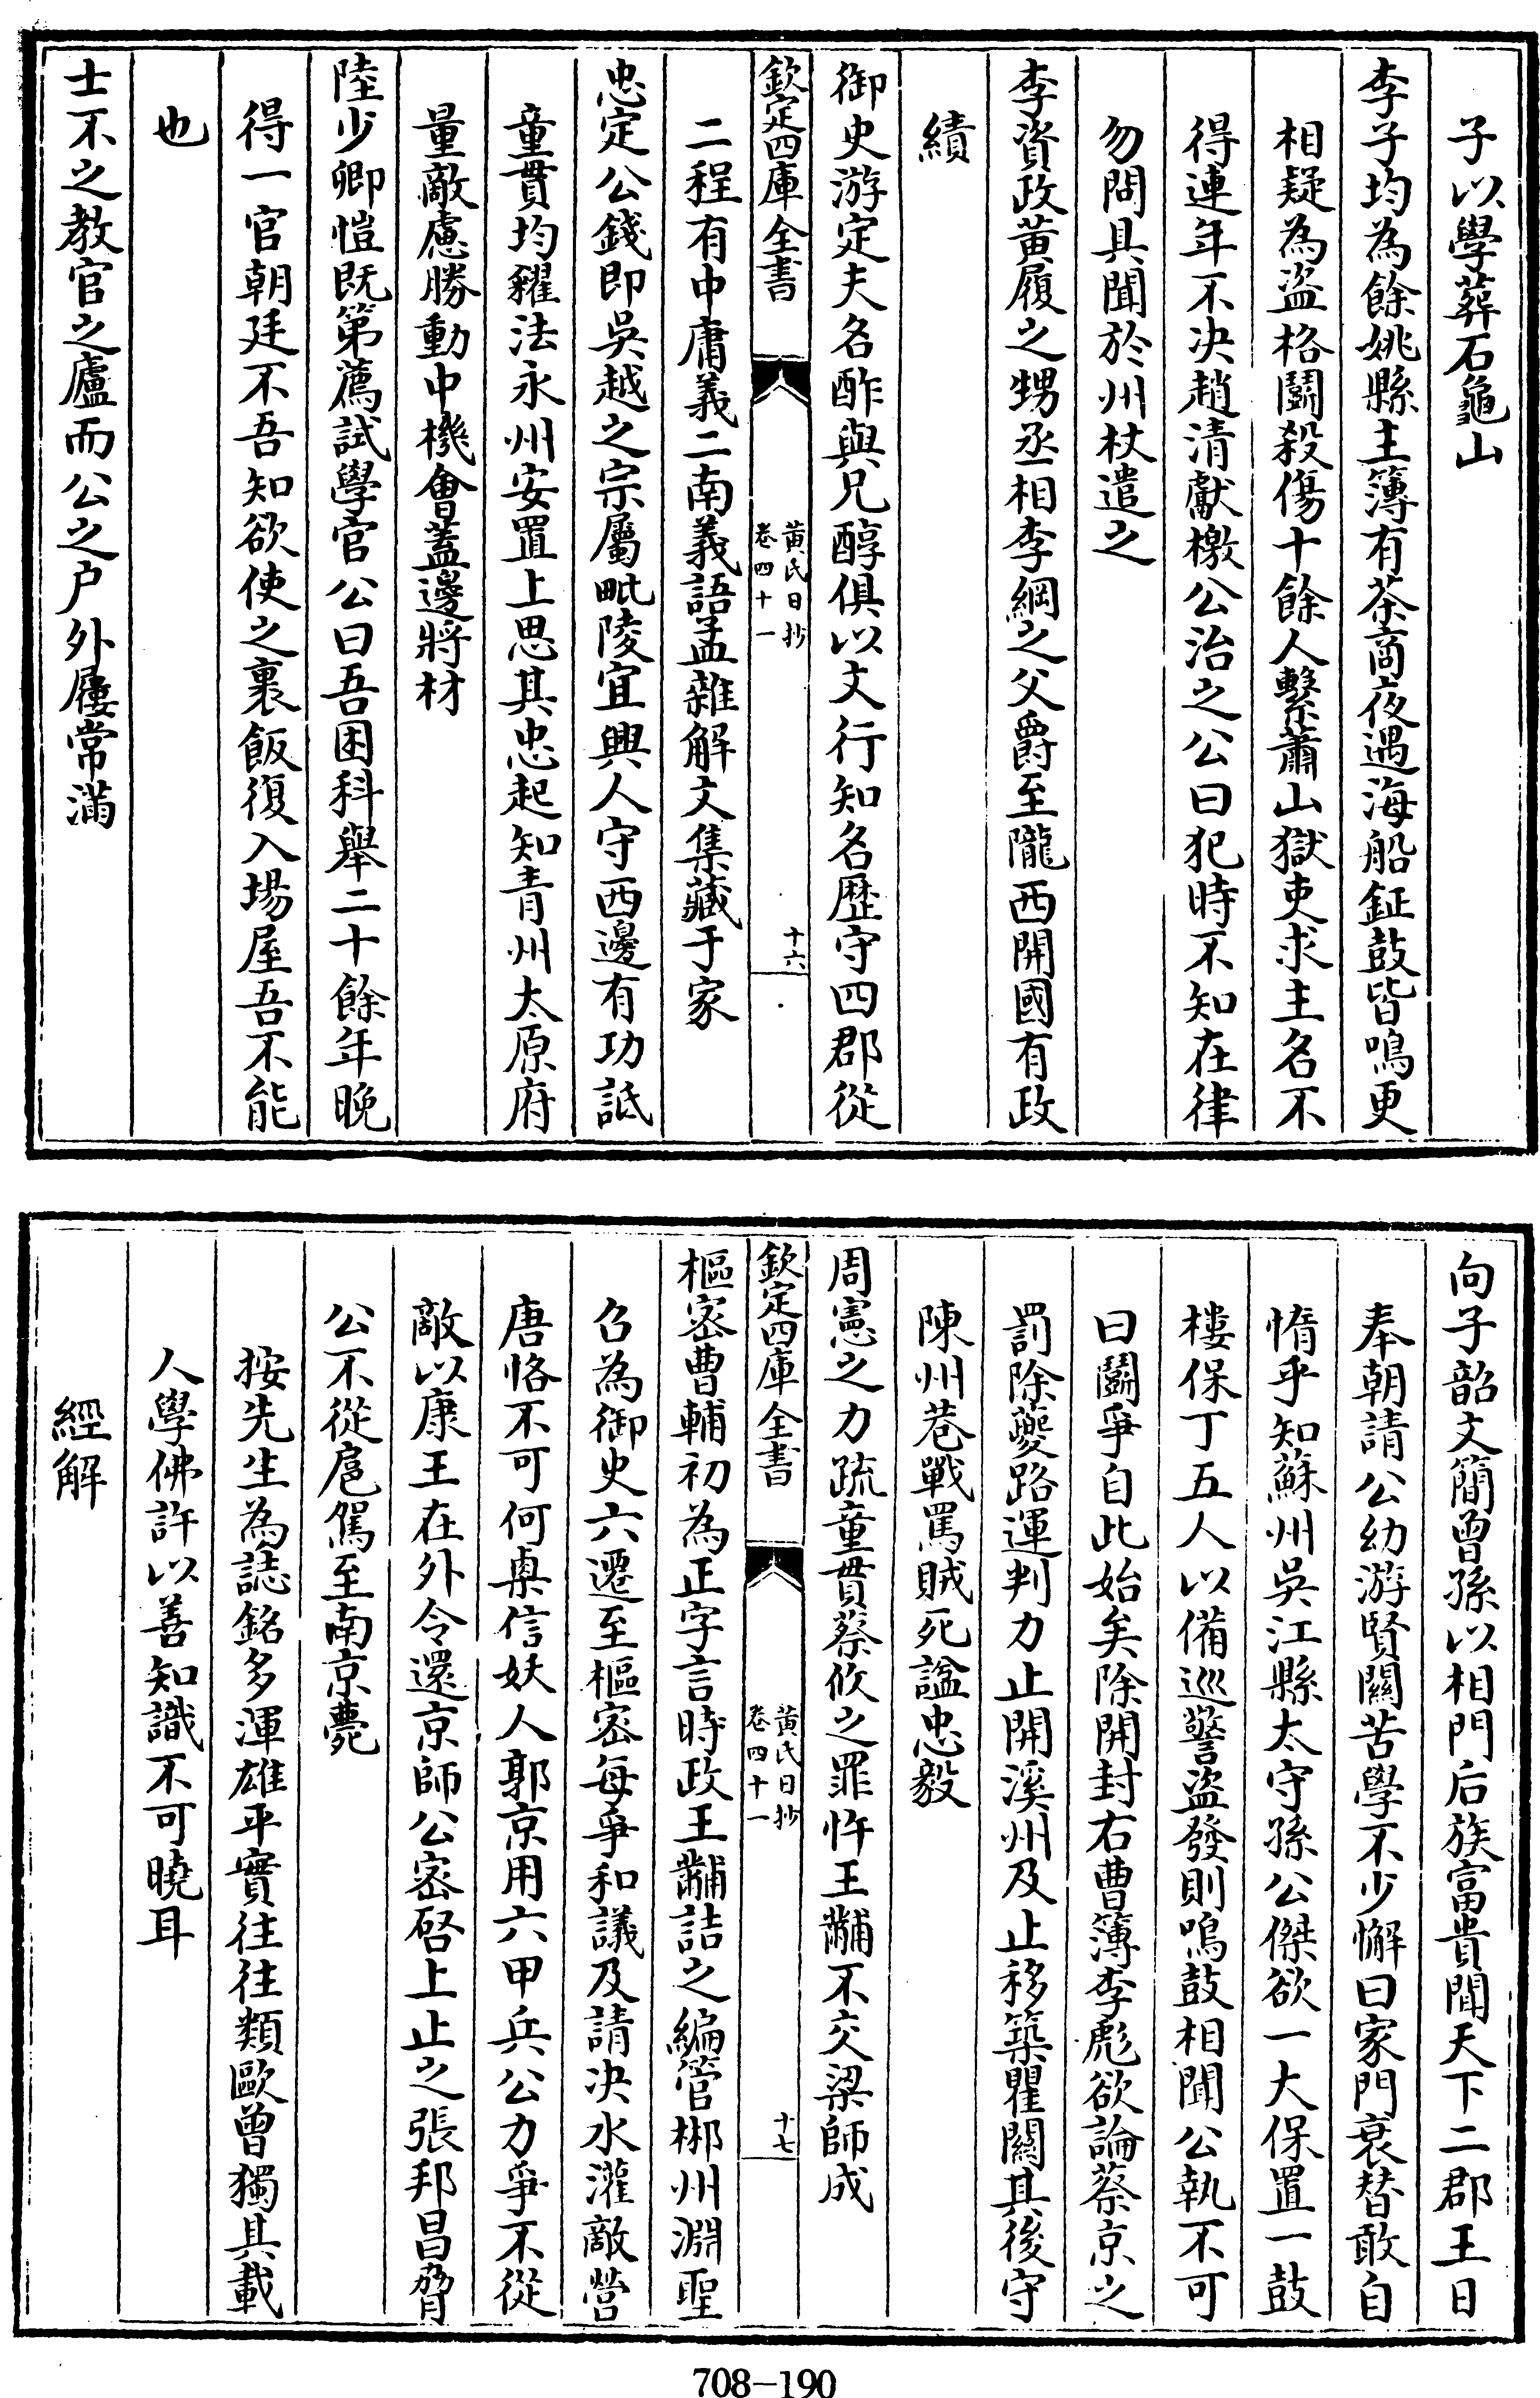 子以學葬石龜山
李子均為餘姚縣主簿有茶商夜遇海船鉦鼓皆鳴更
相疑為盗格鬭殺傷十餘人繫蕭山獄吏求主名不
得連年不決趙清獻檄公治之公曰犯時不知在律
勿問具聞於州杖遣之
李資政黄履之甥丞相李綱之父爵至隴西開國有政
績
御史游定夫名酢與兄醇俱以文行知名歴守四郡從
欽定四庫全書
黄氏日抄
卷四十一
十六
二程有中庸義二南義語孟雜解文集藏于家
忠定公錢即吳越之宗屬毗陵宜興人守西邊有功詆
童貫均糴法永州安置上思其忠起知青州太原府
量敵慮勝動中機會蓋邊將材
陸少卿愷既第薦試學官公曰吾困科舉二十餘年晚
得一官朝廷不吾知欲使之裹飯復入場屋吾不能
也
士不之教官之廬而公之户外屨常滿
向子韶文簡曾孫以相門后族富貴聞天下二郡王日
奉朝請公幼游賢闗苦學不少懈曰家門衰替敢自
惰乎知蘇州吳江縣太守孫公傑欲一大保置一鼓
樓保丁五人以備巡警盗發則鳴鼓相聞公執不可
曰鬭爭自此始矣除開封右曹簿李彪欲論蔡京之
罰除夔路運判力止開溪州及止移築瞿闗其後守
陳州巷戰罵賊死諡忠毅
周憲之力疏童貫蔡攸之罪忤王黼不交梁師成
欽定四庫全書
黄氏日抄
卷四十一
十七
樞宻曹輔初為正字言時政王黼詰之編管郴州淵聖
召為御史六遷至樞宻每爭和議及請决水灌敵營
唐恪不可何㮚信妖人郭京用六甲兵公力爭不從
敵以康王在外令還京師公宻啓上止之張邦昌脅
公不從扈駕至南京薨
按先生為誌銘多渾雄平實往往類歐曾獨其載
人學佛許以善知識不可曉耳
經解
708-190